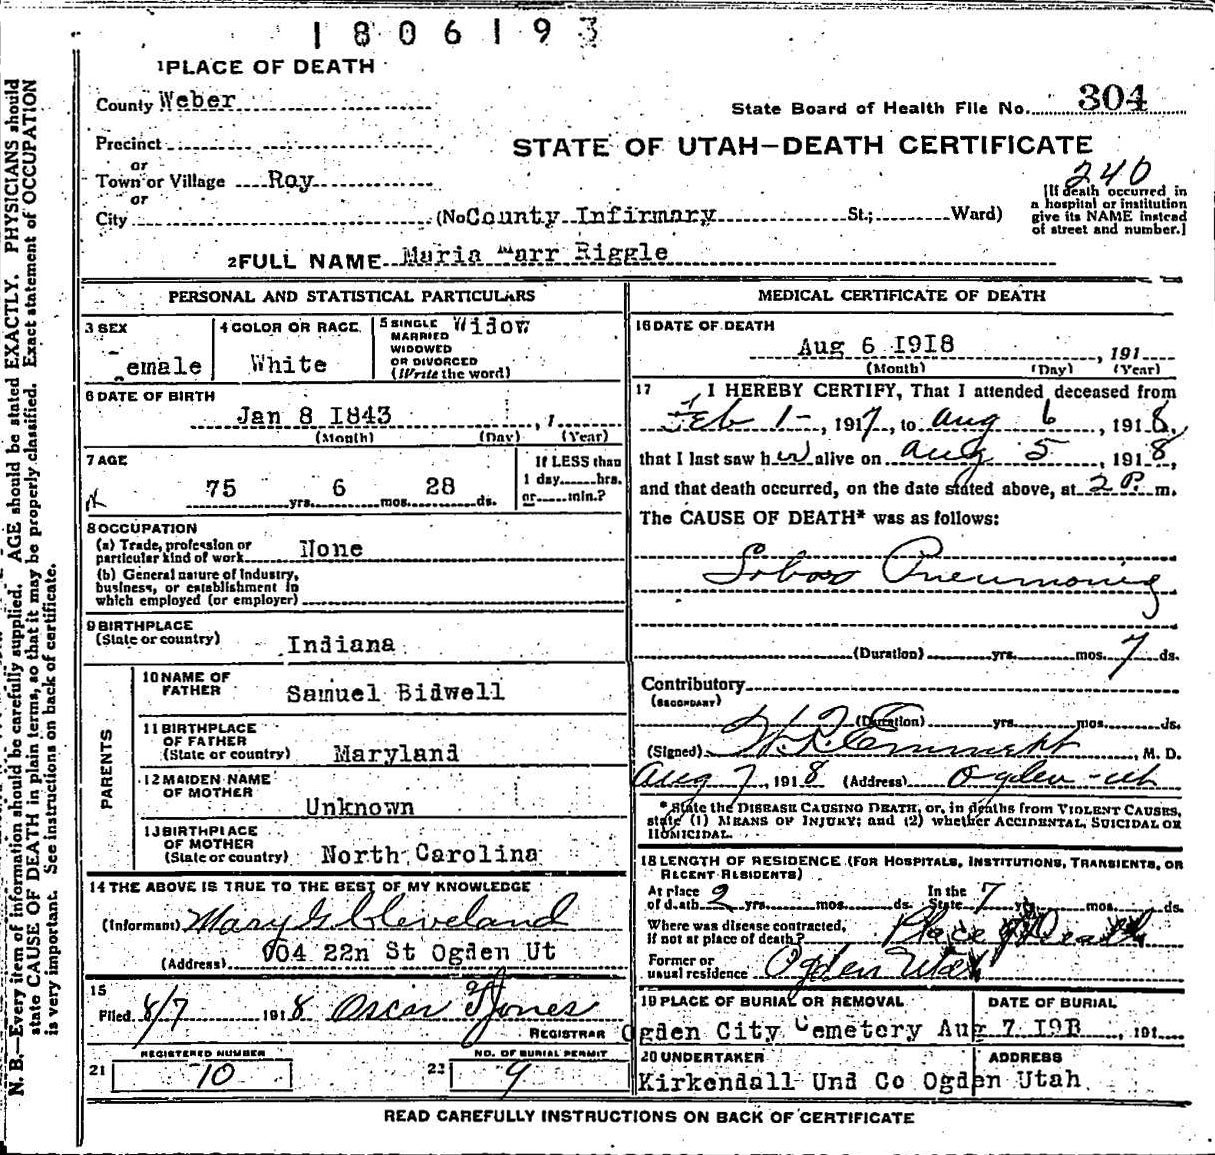 1806193
1 PLACE OF DEATH
County Weber
State Board of Health File No. 304
Precinct
STATE OF UTAH—DEATH CERTIFICATE
or
Town or Village Roy
or
City (No County Infirmary St.; Ward)
240
[If death occurred in
a hospital or institution
give its NAME instead
of street and number.]
2 FULL NAME Maria Marr Riggle
PERSONAL AND STATISTICAL PARTICULARS
3 SEX
emale
4 COLOR OR RACE
White
5 SINGLE Widow
MARRIED
WIDOWED
OR DIVORCED
(Write the word)
6 DATE OF BIRTH
Jan 8 1843 , 1
(Month) (Day) (Year)
7 AGE
75 yrs. 6 mos. 28 ds.
If LESS than
1 day hrs.
or min.?
8 OCCUPATION
(a) Trade, profession or
particular kind of work None
(b) General nature of Industry,
business, or establishment in
which employed (or employer)
9 BIRTHPLACE
(State or country) Indiana
PARENTS
10 NAME OF
FATHER Samuel Bidwell
11 BIRTHPLACE
OF FATHER
(State or country) Maryland
12 MAIDEN NAME
OF MOTHER
Unknown
13 BIRTHPLACE
OF MOTHER
(State or country) North Carolina
14 THE ABOVE IS TRUE TO THE BEST OF MY KNOWLEDGE
(Informant) Mary G Cleveland
(Address) 904 22n St Ogden Ut
15
Filed 8/7 1918 Oscar Jones
REGISTRAR
21 REGISTERED NUMBER 10
22 NO. OF BURIAL PERMIT 9
MEDICAL CERTIFICATE OF DEATH
16 DATE OF DEATH
Aug 6 1918 , 191
(Month) (Day) (Year)
17 I HEREBY CERTIFY, That I attended deceased from
Feb 1- , 1917, to Aug 6 , 1918,
that I last saw her alive on Aug 5 , 1918,
and that death occurred, on the date stated above, at 2 P. m.
The CAUSE OF DEATH* was as follows:
Lobar Pneumonia
(Duration) yrs. mos. 7 ds.
Contributory
(SECONDARY)
(Duration) yrs. mos. ds.
(Signed) Emmett , M. D.
Aug 7, 1918 (Address) Ogden-Ut
* State the DISEASE CAUSING DEATH, or, in deaths from VIOLENT CAUSES,
state (1) MEANS OF INJURY; and (2) whether ACCIDENTAL, SUICIDAL OR
HOMICIDAL.
18 LENGTH OF RESIDENCE (FOR HOSPITALS, INSTITUTIONS, TRANSIENTS, OR
RECENT RESIDENTS)
At place In the
of death 2 yrs. mos. ds. State 7 yrs. mos. ds.
Where was disease contracted,
If not at place of death? Place of Death
Former or
usual residence Ogden Utah
19 PLACE OF BURIAL OR REMOVAL DATE OF BURIAL
Ogden City Cemetery Aug 7 1918 , 191
20 UNDERTAKER ADDRESS
Kirkendall Und Co Ogden Utah
READ CAREFULLY INSTRUCTIONS ON BACK OF CERTIFICATE
N. B.—Every item of information should be carefully supplied. AGE should be stated EXACTLY. PHYSICIANS should
state CAUSE OF DEATH in plain terms, so that it may be properly classified. Exact statement of OCCUPATION
is very important. See instructions on back of certificate.